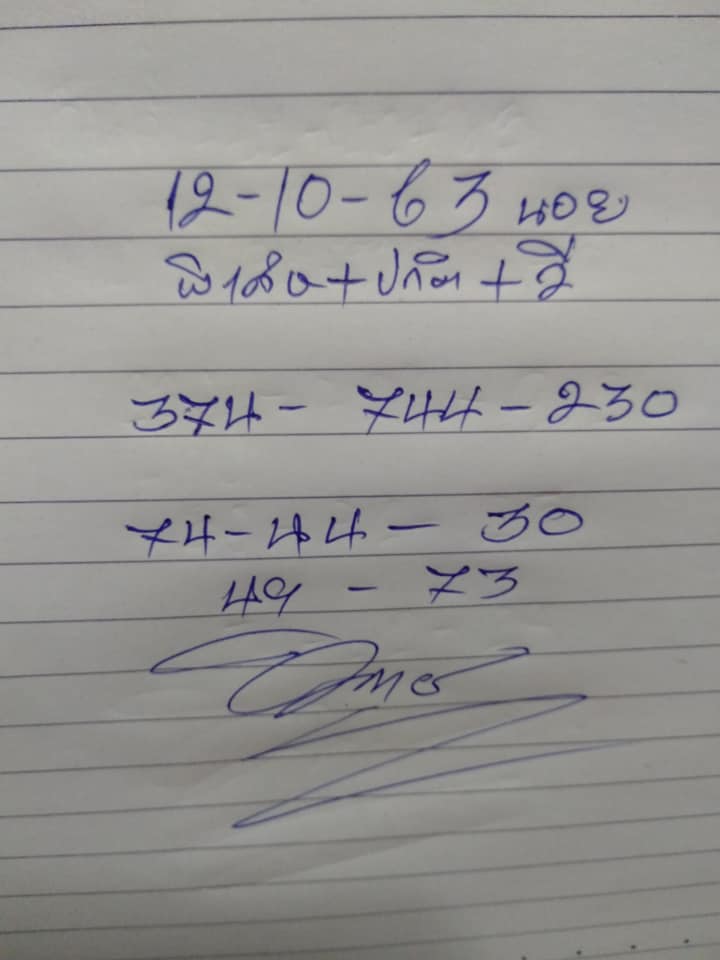 12-10-63 นอย
พิเศษ+ปกติ+วี
374- 744-230
74-44- 30
49 - 73